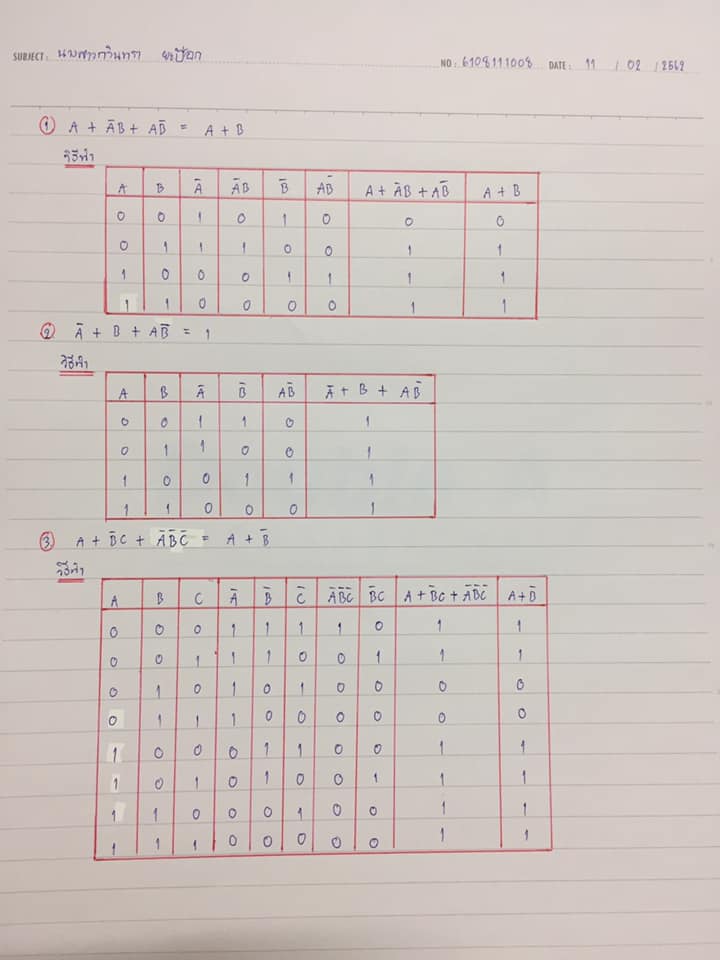 SUBJECT : นางสาวกวินทรา ยะป๊อก
NO : 6108111008 DATE : 11 / 02 / 2562
① A + A̅B + AB̅ = A + B
วิธีทำ
A B A̅ A̅B B̅ AB̅ A + A̅B + AB̅ A + B
0 0 1 0 1 0 0 0
0 1 1 1 0 0 1 1
1 0 0 0 1 1 1 1
1 1 0 0 0 0 1 1
② A̅ + B + AB̅ = 1
วิธีทำ
A B A̅ B̅ AB̅ A̅ + B + AB̅
0 0 1 1 0 1
0 1 1 0 0 1
1 0 0 1 1 1
1 1 0 0 0 1
③ A + B̅C + A̅B̅C̅ = A + B̅
วิธีทำ
A B C A̅ B̅ C̅ A̅B̅C̅ B̅C A + B̅C + A̅B̅C̅ A + B̅
0 0 0 1 1 1 1 0 1 1
0 0 1 1 1 0 0 1 1 1
0 1 0 1 0 1 0 0 0 0
0 1 1 1 0 0 0 0 0 0
1 0 0 0 1 1 0 0 1 1
1 0 1 0 1 0 0 1 1 1
1 1 0 0 0 1 0 0 1 1
1 1 1 0 0 0 0 0 1 1